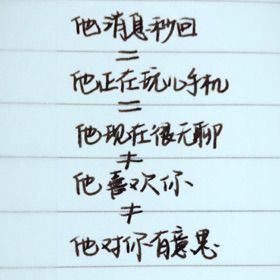 他消息秒回
=
他正在玩儿手机
=
他现在很无聊
≠
他喜欢你
≠
他对你有意思